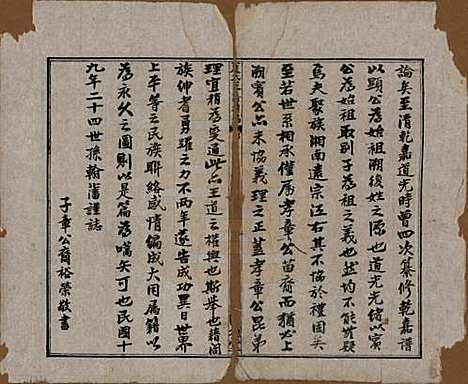 論矣至清乾嘉道光時曾四次纂修乾嘉譜
以顯公為始祖溯後姓之源也道光光緒以賓
公為始祖取別子為祖之義也然均不能無疑
焉夫聚族湘南遠宗江右其不協於禮固矣
至若世系相承僅屬孝章公苗裔而猶必上
溯賓公亦未協義理之正蓋孝章公昆弟
理宜稍為變通此亦王道之權輿也斯舉也籍闔
族紳耆勇躍之力不兩年遂告成功異日世界
上平等之民族聯絡感情編成大同屬籍以
為永久之圖則以是篇為嚆矢可也民國十
九年二十四世孫翰藩謹誌
子章公裔裕榮敬書